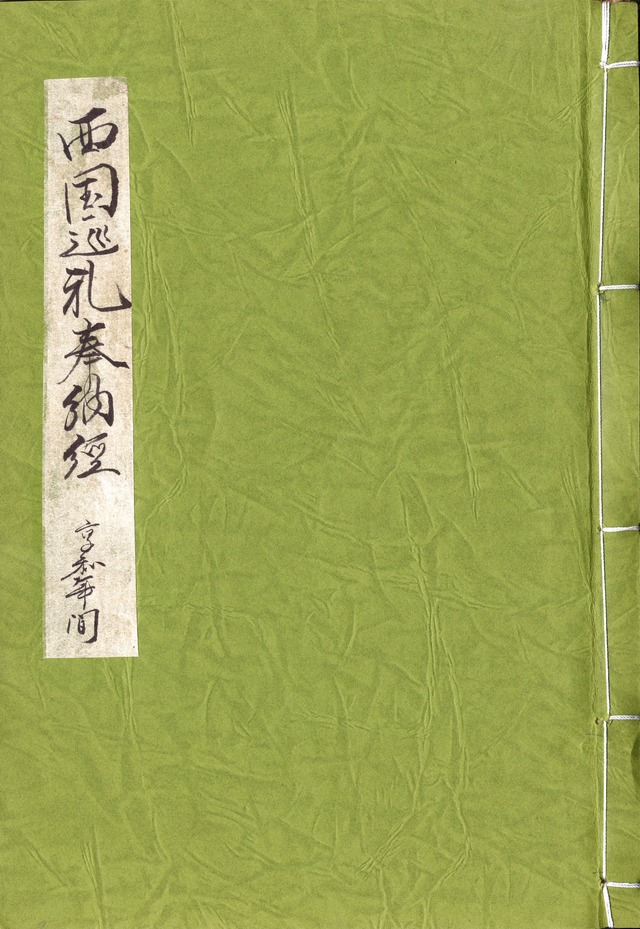 西国巡礼奉納經
享和年間